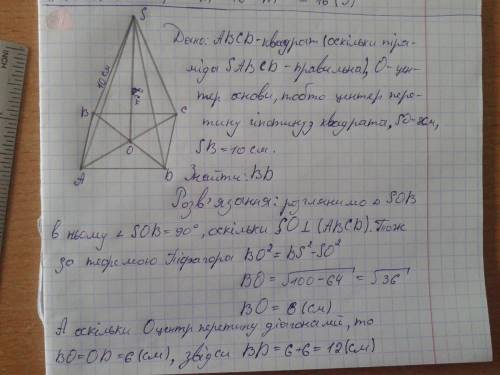 S
10 см
8 см
B
C
O
A
D
Дано: ABCD-квадрат (оскільки піра-
міда SABCD-правильна), O-цен-
тер основи, тобто центер пере-
тину гіпотинуз квадрата, SO=8см,
SB=10см.
Знайти: BD
Розв'язання: розглянимо △ SOB
в ньому ∠ SOB=90°, оскільки SO⊥(ABCD). Тож
за теоремою Піфагора BO²=BS²-SO²
BO=√100-64=√36
BO=6(см)
А оскільки O центр перетину діагоналей, то
BO=OD=6(см), звідси BD=6+6=12(см)